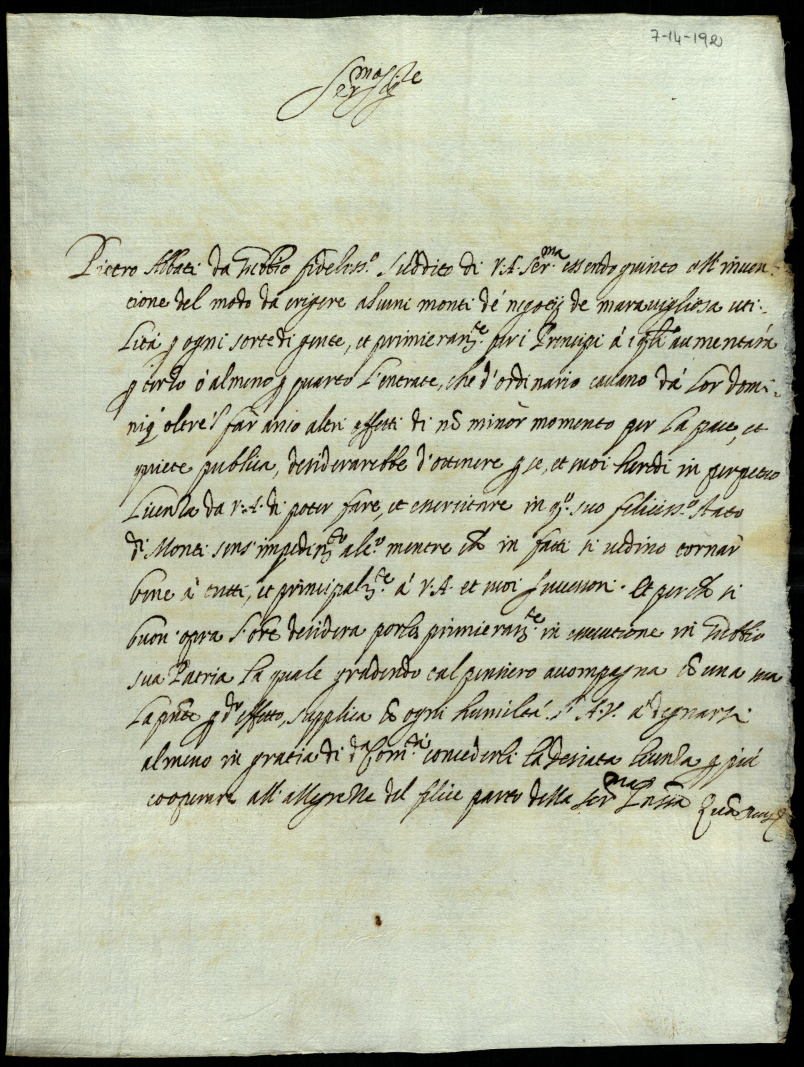 7-14-192
Ser.mo Sig.re
Pietro Abbati da Gubbio fideliss.o suddito di V.A. Ser.ma essendo giunto all'inven-
tione del modo da erigere alcuni monti de negotij de maravigliosa uti-
lità p ogni sorte di gente, et primieram.te per i Principi à i q.li aumentarà
p terzo ò almeno p quarto l'entrate, che d'ordinario cavano dà lor domi-
nij, oltre'l far anco altri effetti di nõ minor momento per la pace, et
quiete publica, desiderarebbe d'ottenere p se, et suoi heredi in perpetuo
licenza da V.A. di poter fare, et essercitare in q.o suo feliciss.o stato
d.i Monti sens'impedim.to alc.o mentre ch in fatti si vedino tornar
bene à tutti, et principalm.te à V.A. et suoi successori. Et perch si
buon'opra l'Or.e desidera porla primieram.te in essecutione in Gubbio
sua Patria la quale gradendo tal pensiero accompagna cõ una sua
la p.nte p d.o effetto, supplica cõ ogni humiltà l'A.V. à degnarsi
almeno in gratia di d.a Com.tà concederli la desiata licenza p più
cooperare all'allegrezze del felice parto della Ser.ma Prñssa